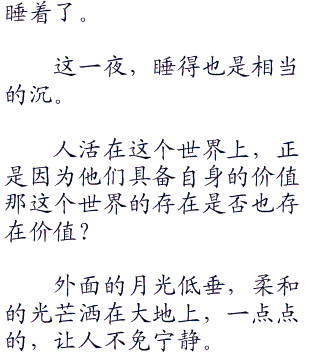 睡着了。
这一夜，睡得也是相当
的沉。
人活在这个世界上，正
是因为他们具备自身的价值
那这个世界的存在是否也存
在价值？
外面的月光低垂，柔和
的光芒洒在大地上，一点点
的，让人不免宁静。